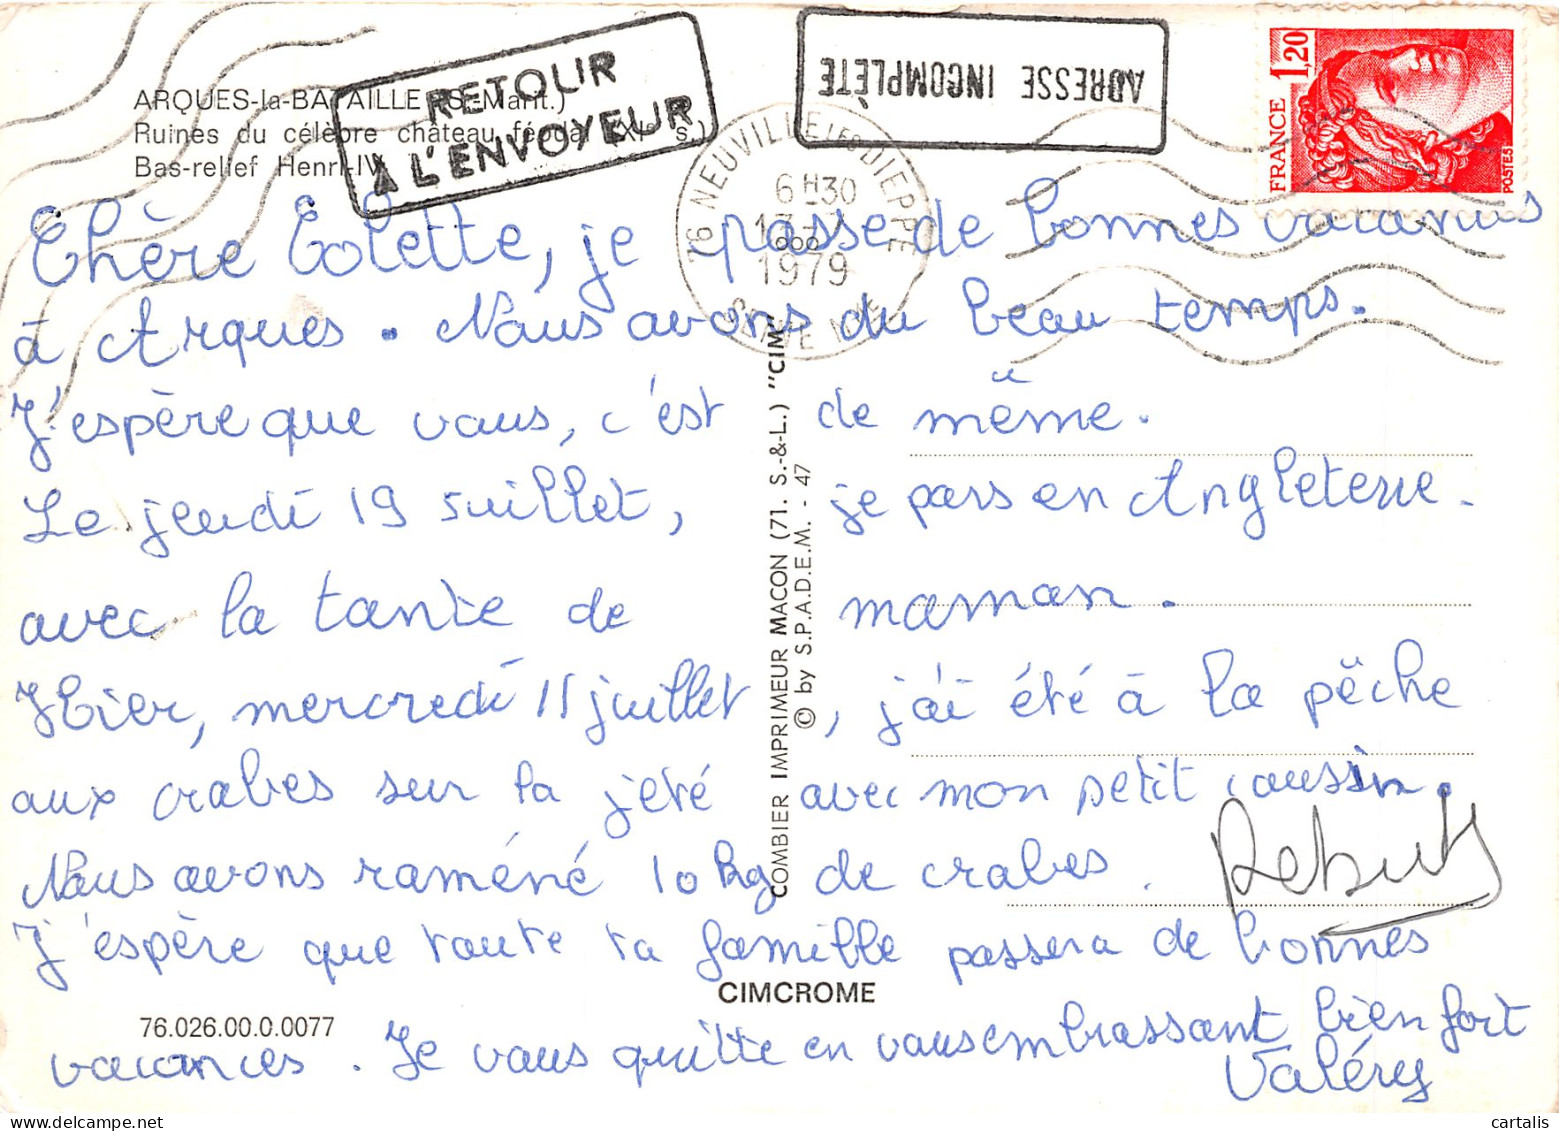 ARQUES-la-BATAILLE (S.-Marit.)
Ruines du célèbre château féodal (XIe s.)
Bas-relief Henri-IV
RETOUR
A L'ENVOYEUR
ADRESSE INCOMPLÈTE
76 NEUVILLE LES DIEPPE
6H30
1979
SEINE MME
1,20
FRANCE
POSTES
Chère Colette, je passe de bonnes vacances
à Arques. Nous avons du beau temps.
J'espère que vous, c'est de même.
Le jeudi 19 juillet, je pars en Angleterre.
avec la tante de maman.
Hier, mercredi 11 juillet, j'ai été à la pêche
aux crabes sur la jeté avec mon petit cousin.
Nous avons raméné 10 kg de crabes.
J'espère que toute ta famille passera de bonnes
vacances. Je vous quitte en vous embrassant bien fort
Valéry
Rebuts
COMBIER IMPRIMEUR MACON (71. S.-&-L.) "CIM"
© by S.P.A.D.E.M. - 47
CIMCROME
76.026.00.0.0077
www.delcampe.net
cartalis